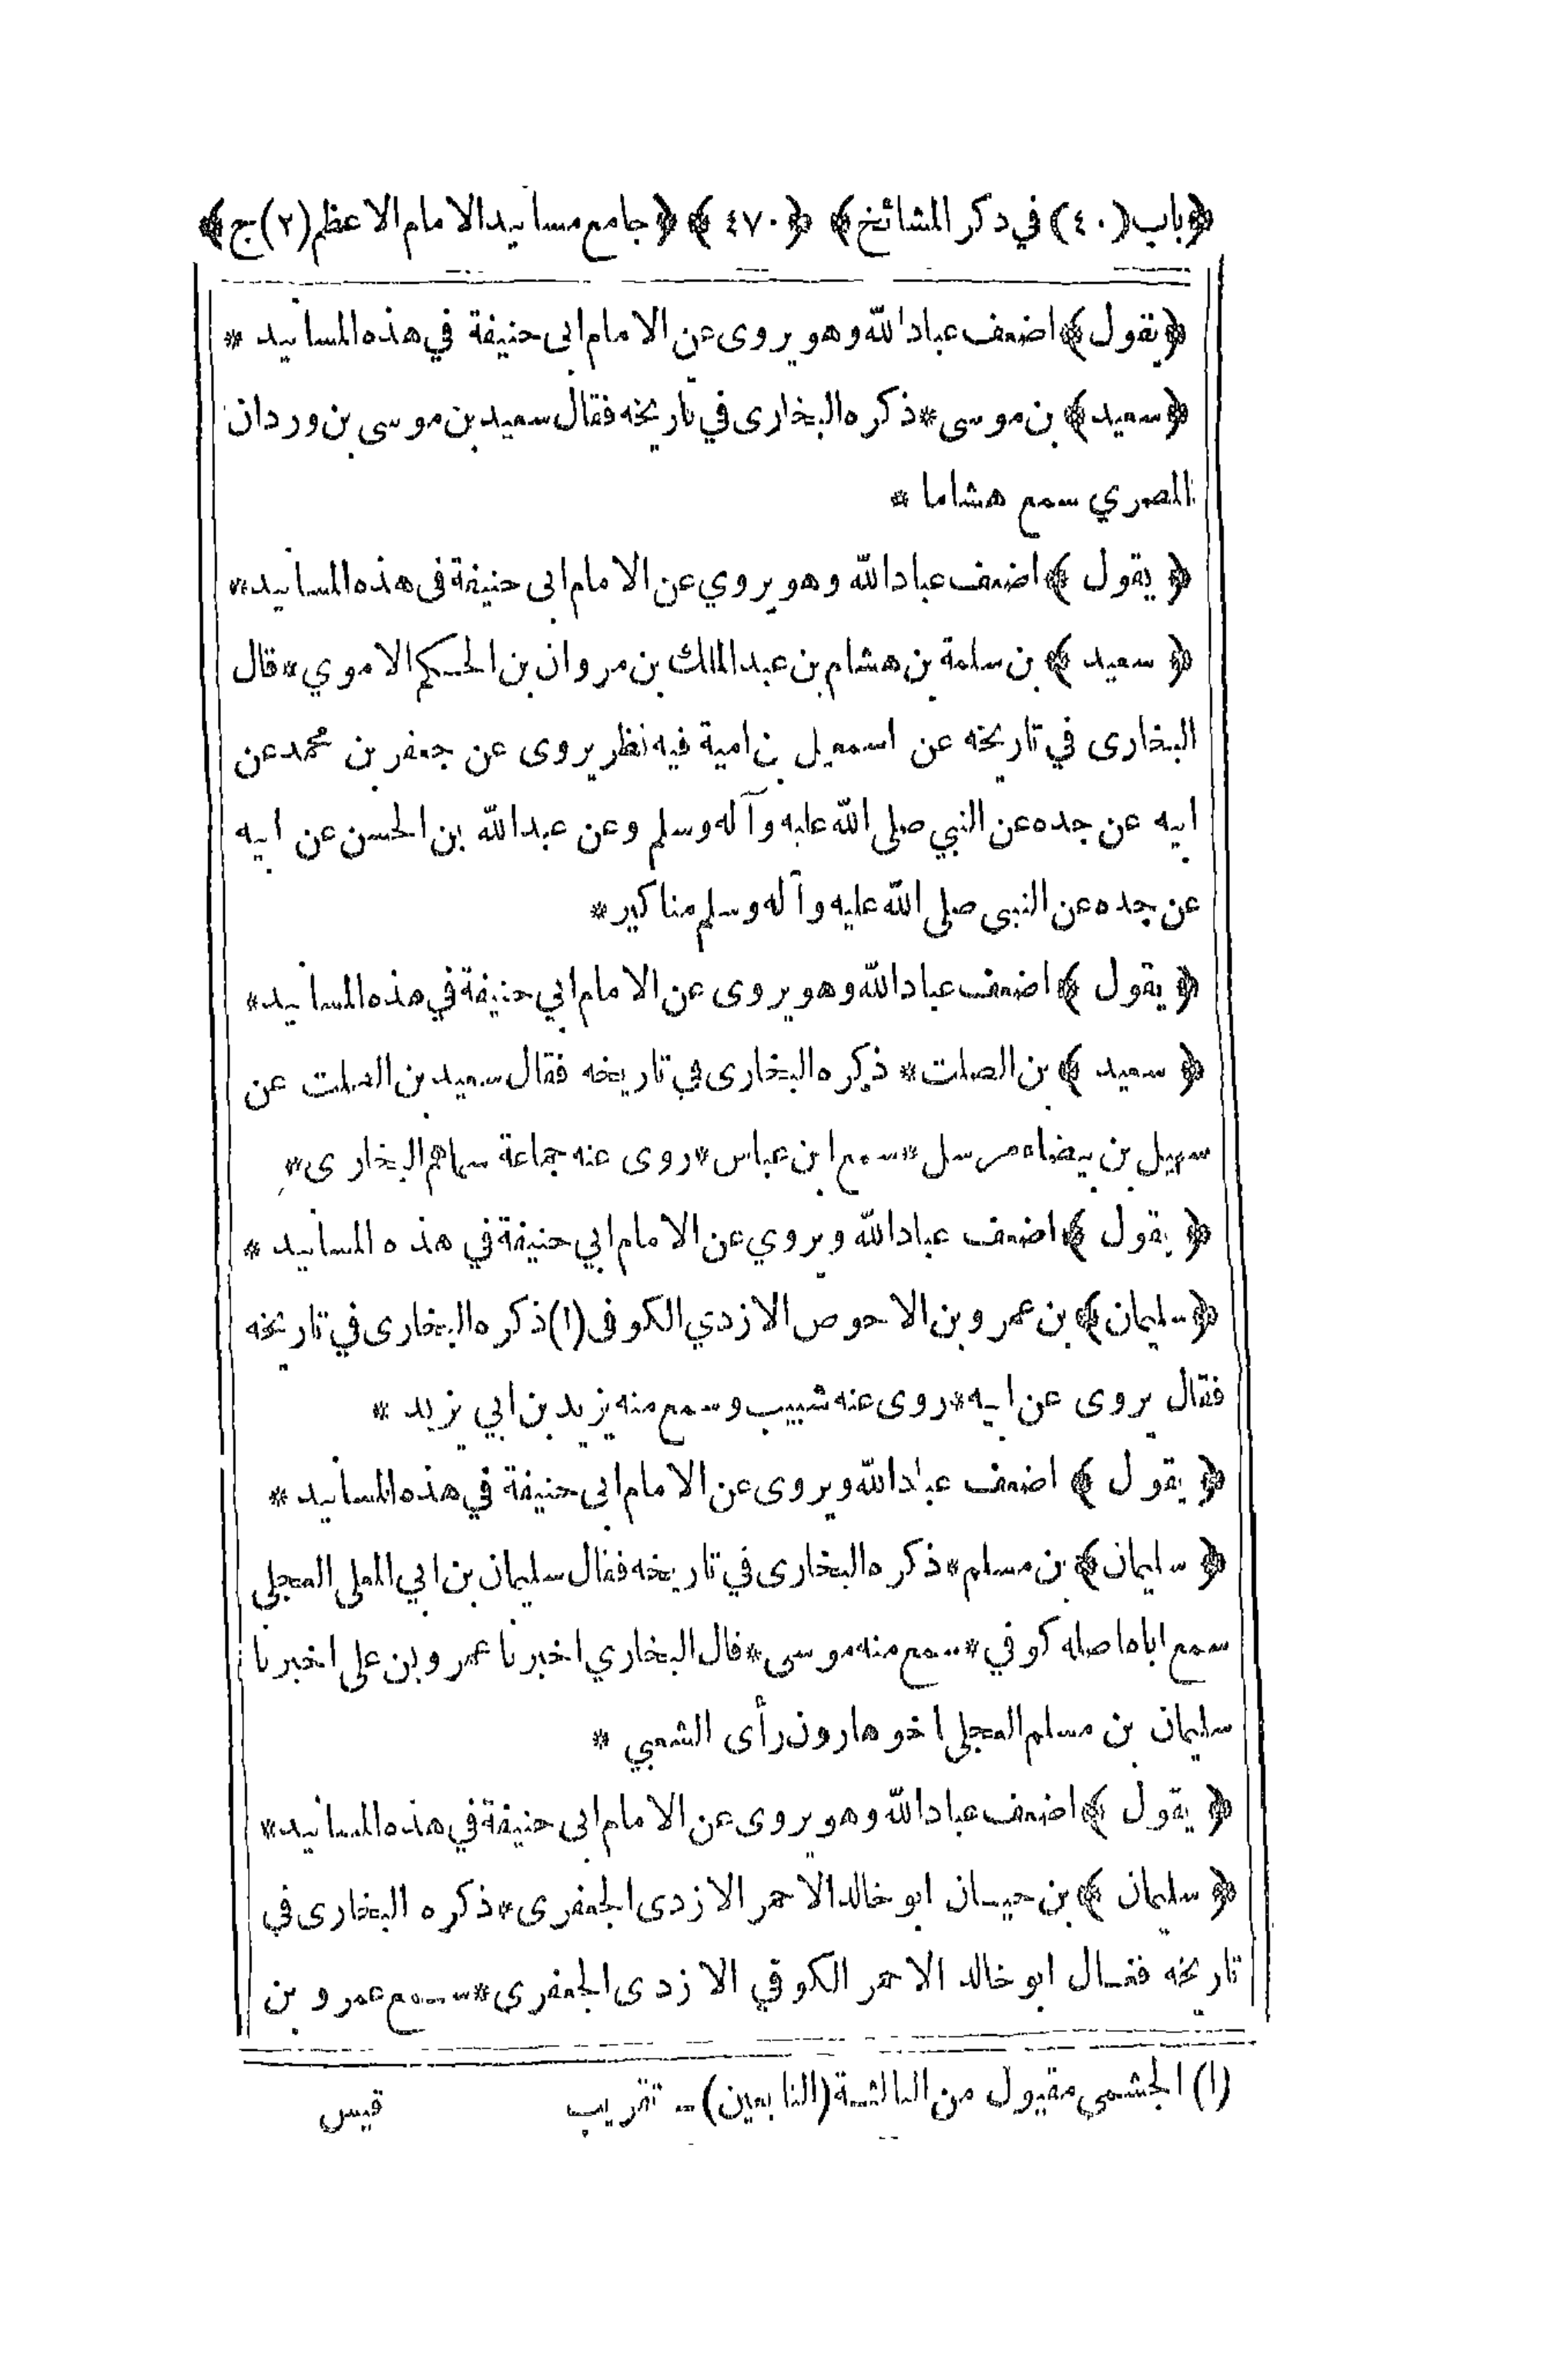 ﴿باب(٤٠)في ذكر المشائخ﴾ ﴿٤٧٠﴾ ﴿جامع مسانيد الامام الاعظم(٢)ج﴾
﴿يقول﴾ اضعف عباد الله وهو يروى عن الامام ابى حنيفة في هذه المسانيد *
﴿سعيد﴾ بن موسى * ذكره البخارى في تاريخه فقال سعيد بن موسى بن وردان
المصري سمع هشاما *
﴿يقول﴾ اضعف عباد الله وهو يروي عن الامام ابى حنيفة فى هذه المسانيد *
﴿سعيد﴾ بن سلمة بن هشام بن عبد الملك بن مروان بن الحكم الاموي * قال
البخارى في تاريخه عن اسمعيل بن امية فيه نظر يروى عن جعفر بن محمد عن
ابيه عن جده عن النبي صلى الله عليه وآله وسلم وعن عبد الله بن الحسن عن ابيه
عن جده عن النبى صلى الله عليه وآله وسلم مناكير *
﴿يقول﴾ اضعف عباد الله وهو يروى عن الامام ابي حنيفة في هذه المسانيد *
﴿سعيد﴾ بن الصلت * ذكره البخارى في تاريخه فقال سعيد بن الصلت عن
سهيل بن بيضاء مرسل * سمع ابن عباس * روى عنه جماعة سماهم البخارى *
﴿يقول﴾ اضعف عباد الله ويروي عن الامام ابي حنيفة في هذه المسانيد *
﴿سليمان﴾ بن عمرو بن الاحوص الازدي الكوفى (١) ذكره البخارى في تاريخه
فقال يروى عن ابيه * روى عنه شبيب وسمع منه يزيد بن ابي يزيد *
﴿يقول﴾ اضعف عباد الله ويروى عن الامام ابى حنيفة في هذه المسانيد *
﴿سليمان﴾ بن مسلم * ذكره البخارى في تاريخه فقال سليمان بن ابي المعلى العجلى
سمع اباه اصله كوفي * سمع منه موسى * قال البخاري اخبرنا عمرو بن على اخبرنا
سليمان بن مسلم العجلى اخو هارون رأى الشعبي *
﴿يقول﴾ اضعف عباد الله وهو يروى عن الامام ابى حنيفة في هذه المسانيد *
﴿سليمان﴾ بن حيان ابو خالد الاحمر الازدى الجعفرى * ذكره البخارى في
تاريخه فقال ابو خالد الاحمر الكوفي الازدى الجعفرى * سمع عمرو بن
(١) الجشمي مقبول من الثالثة (التابعين) - تقريب قيس